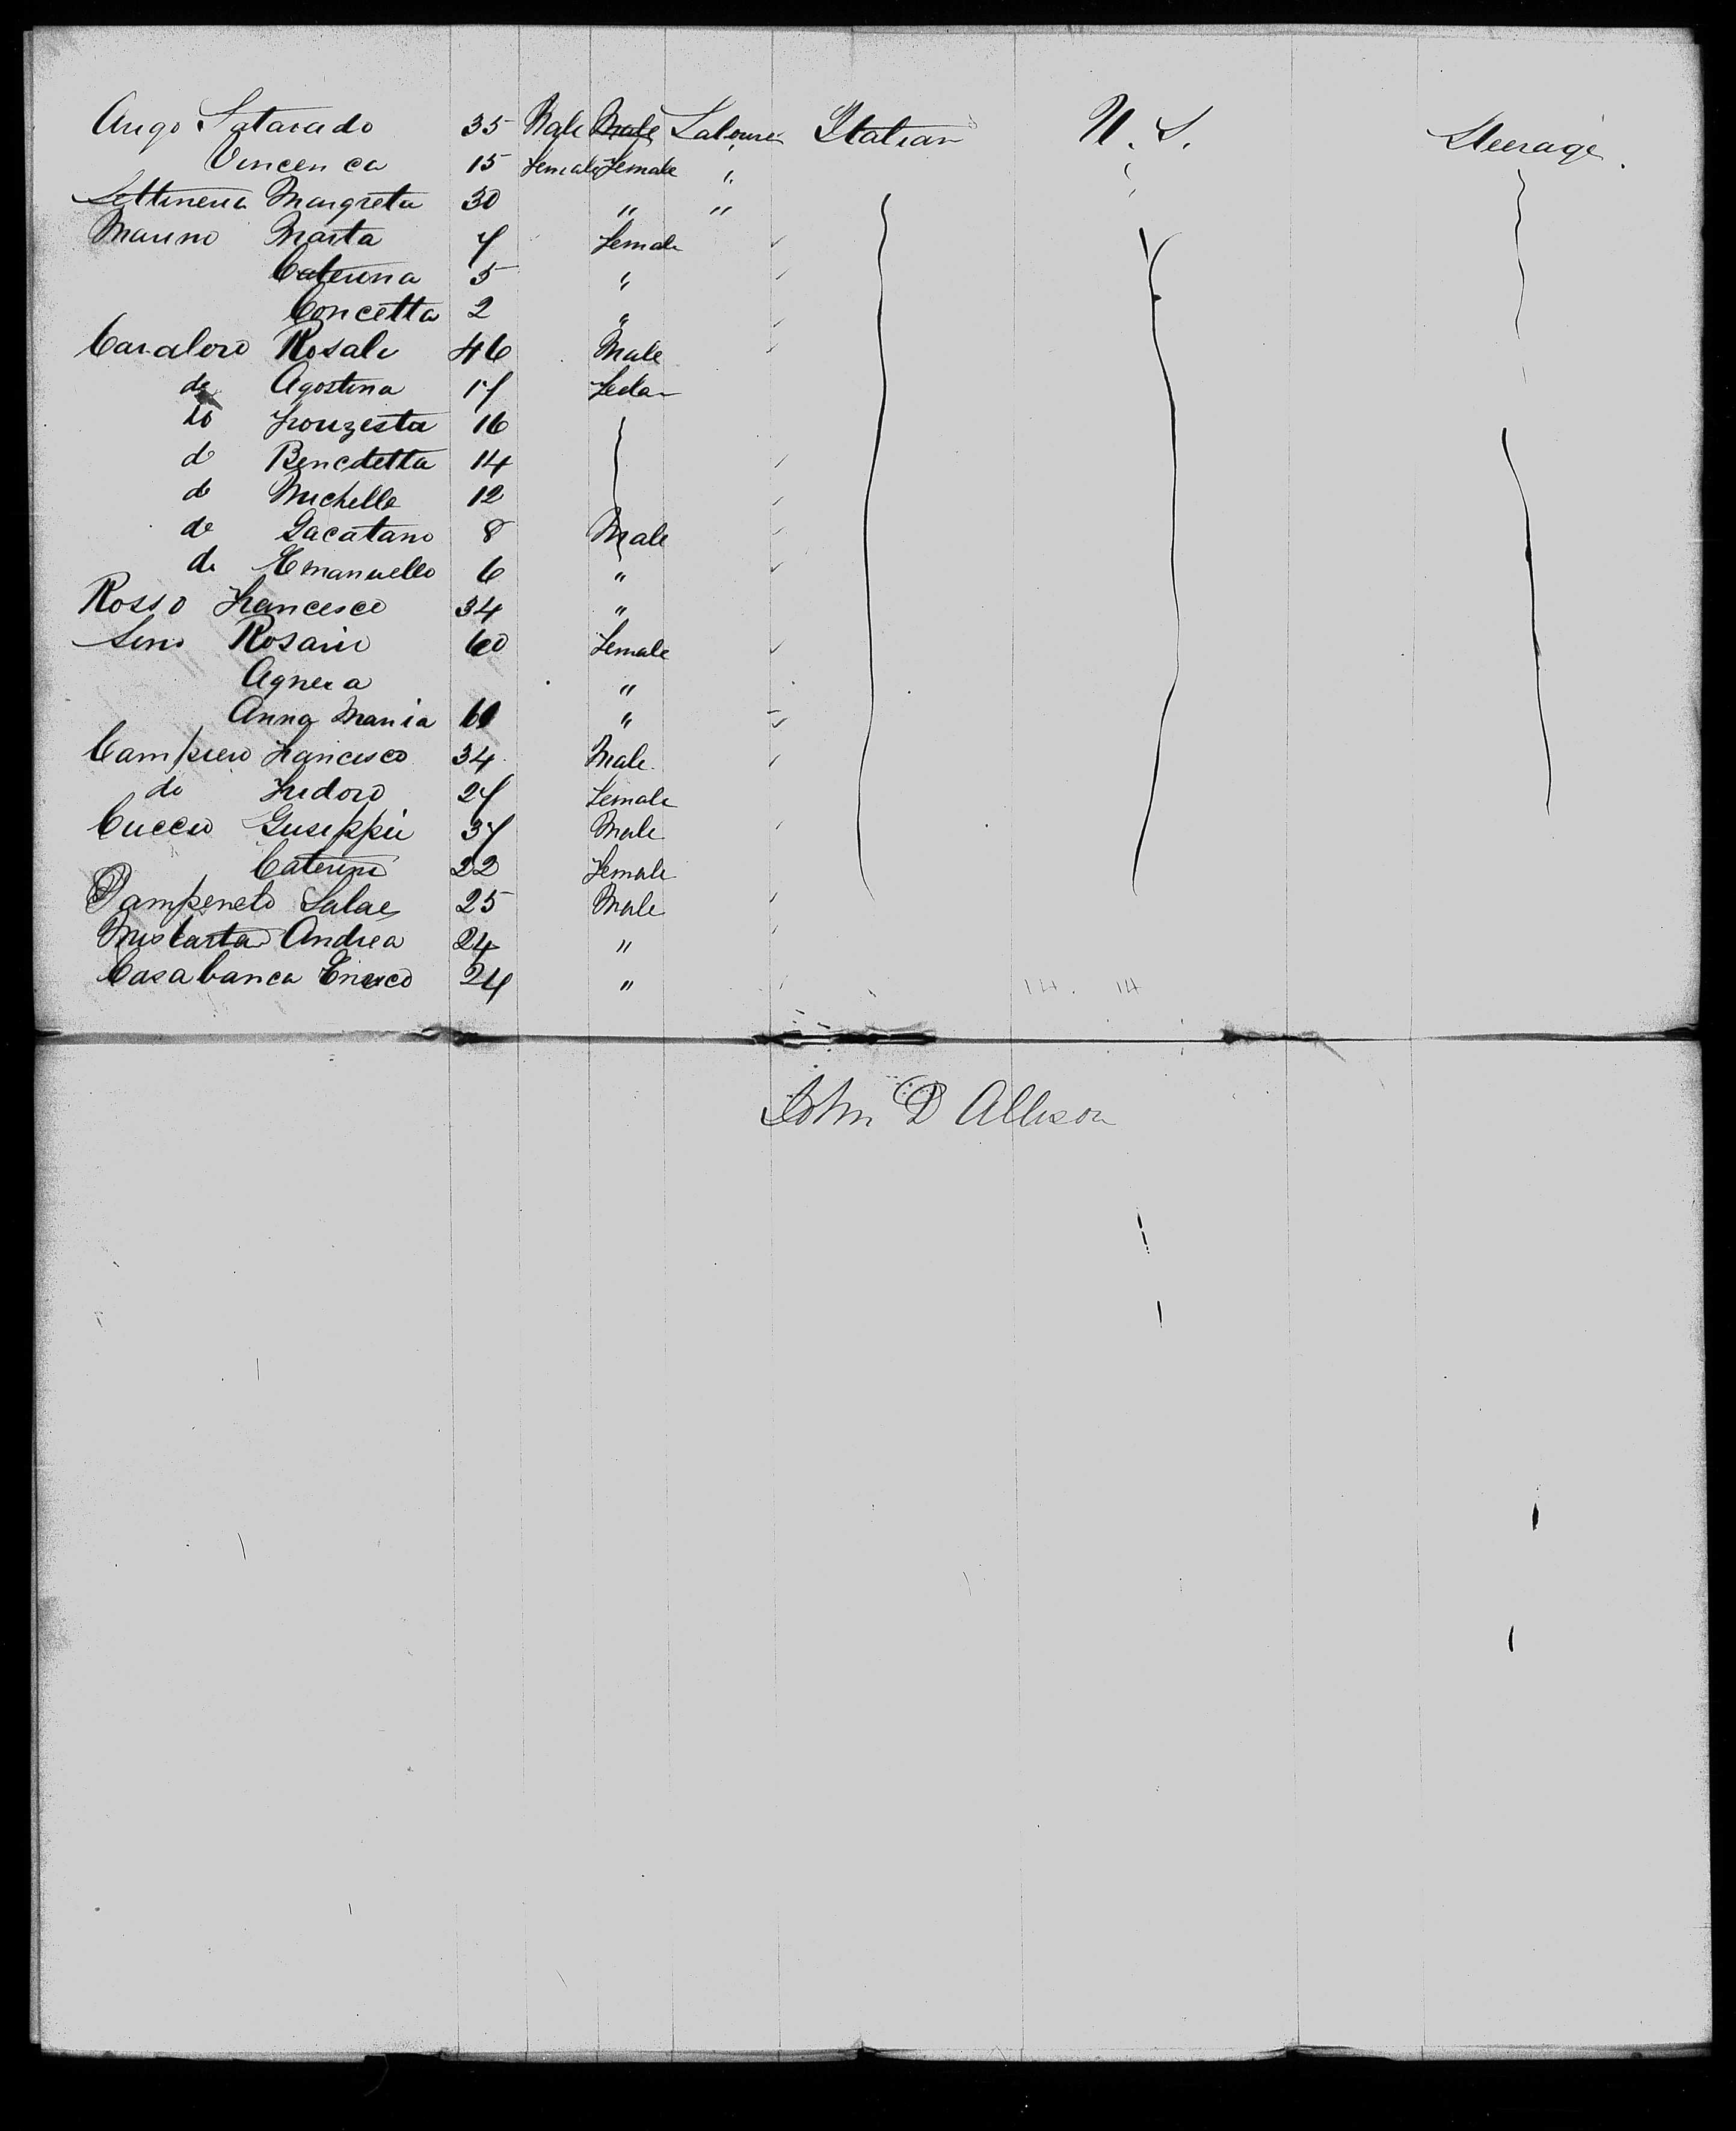 Ango Satarado 35 Male Male Labourer Italian U. S. Steerage.
Vincenca 15 Female Female "
Settineria Margreta 30 " "
Mauno Marta 7 Female
Caterina 5 "
Concetta 2 "
Cavalero Rosale 46 Male
do Agostina 17 Female
do 16
do Benedetta 14
do Michelle 12
do Gacatano 8 Male
do Emanuello 6 "
Rosso Francesco 34 "
Seno Rosario 60 Female
Agnera "
Anna Maria "
Campiero Francesco 34 Male
do Isidoro 27 Female
Cuccio Guseppie 37 Male
Caterina 22 Female
Pampenelo Salae 25 Male
Andrea 24 "
Casabanca Enrico 24 "
14. 14
John D Allison